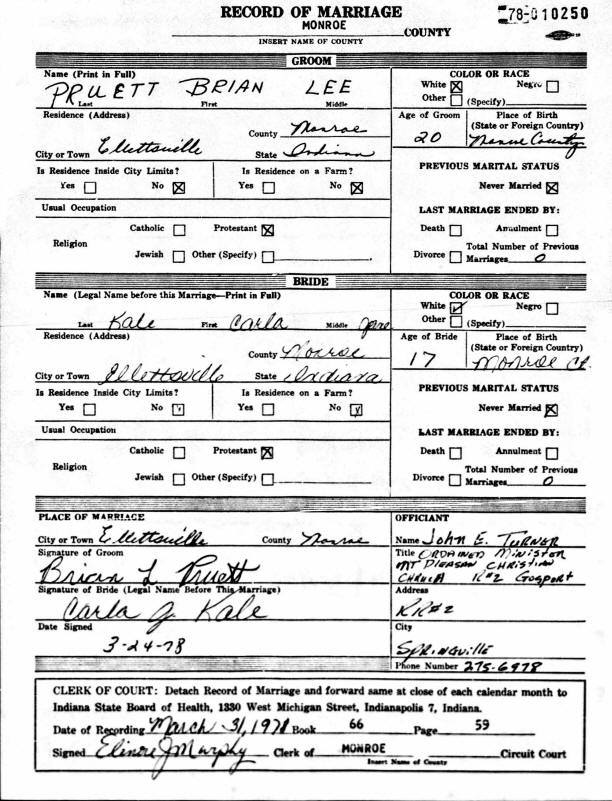 RECORD OF MARRIAGE
78-010250
MONROE COUNTY
INSERT NAME OF COUNTY
GROOM
Name (Print in Full)
PRUETT BRIAN LEE
Last First Middle
COLOR OR RACE
White ☒ Negro ☐
Other ☐ (Specify)
Residence (Address)
County Monroe
City or Town Ellettsville State Indiana
Age of Groom
20
Place of Birth
(State or Foreign Country)
Monroe County
Is Residence Inside City Limits?
Yes ☐ No ☒
Is Residence on a Farm?
Yes ☐ No ☒
PREVIOUS MARITAL STATUS
Never Married ☒
Usual Occupation
LAST MARRIAGE ENDED BY:
Death ☐ Annulment ☐
Divorce ☐ Total Number of Previous
Marriages 0
Religion
Catholic ☐ Protestant ☒
Jewish ☐ Other (Specify) ☐
BRIDE
Name (Legal Name before this Marriage—Print in Full)
Last Kale First Carla Middle Jane
COLOR OR RACE
White ☑ Negro ☐
Other ☐ (Specify)
Residence (Address)
County Monroe
City or Town Ellettsville State Indiana
Age of Bride
17
Place of Birth
(State or Foreign Country)
Monroe Ct.
Is Residence Inside City Limits?
Yes ☐ No ☑
Is Residence on a Farm?
Yes ☐ No ☑
PREVIOUS MARITAL STATUS
Never Married ☒
Usual Occupation
LAST MARRIAGE ENDED BY:
Death ☐ Annulment ☐
Divorce ☐ Total Number of Previous
Marriages 0
Religion
Catholic ☐ Protestant ☒
Jewish ☐ Other (Specify) ☐
PLACE OF MARRIAGE
City or Town Ellettsville County Monroe
Signature of Groom
Brian L Pruett
Signature of Bride (Legal Name Before This Marriage)
Carla J. Kale
Date Signed
3-24-78
OFFICIANT
Name John E. TURNER
Title ORDAINED MINISTER
MT PLEASAN CHRISTIAN
CHURCH R#2 GOSPORT
Address
RR#2
City
SPRINGVILLE
Phone Number 275-6978
CLERK OF COURT: Detach Record of Marriage and forward same at close of each calendar month to
Indiana State Board of Health, 1330 West Michigan Street, Indianapolis 7, Indiana.
Date of Recording March 31, 1978 Book 66 Page 59
Signed Elinore J Murphy Clerk of MONROE Circuit Court
Insert Name of County